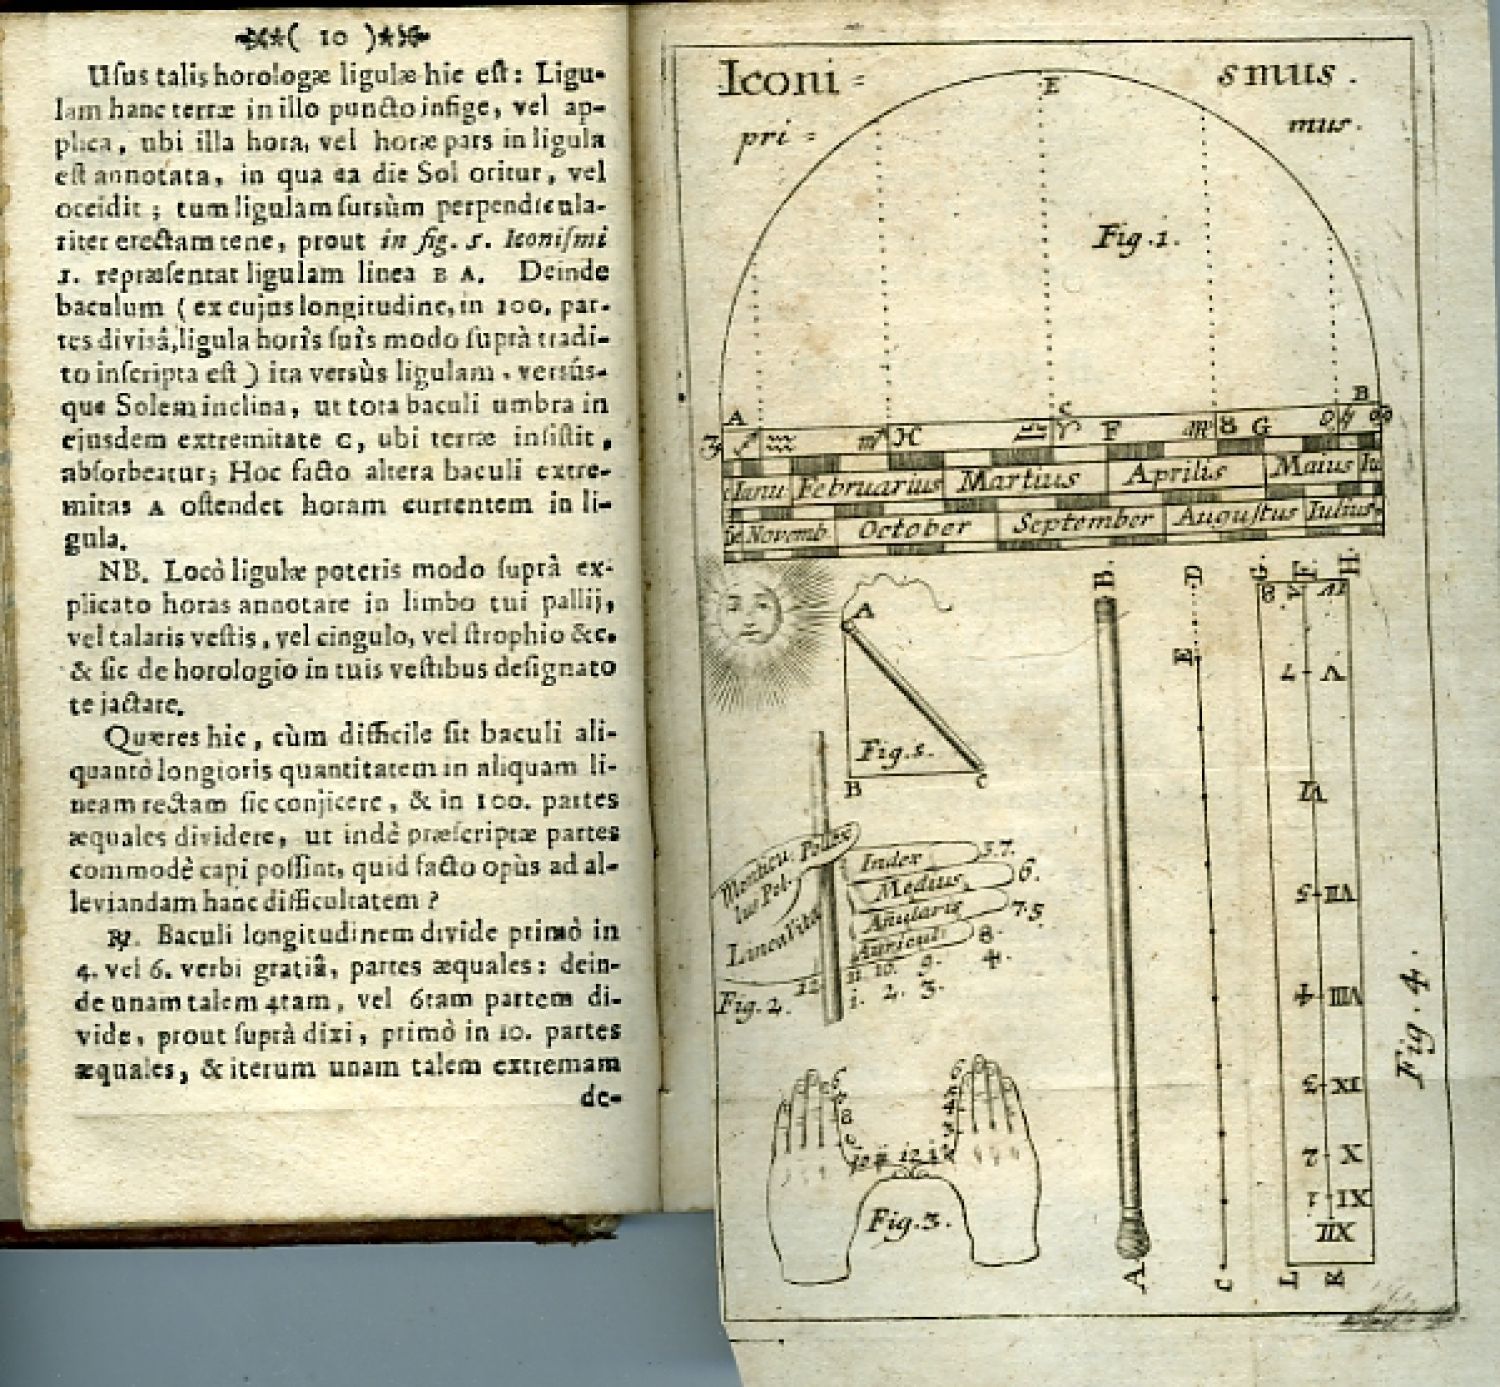 ( 10 )
Uſus talis horologæ ligulæ hic eſt: Ligu-
lam hanc terræ in illo puncto infige, vel ap-
plica, ubi illa hora, vel horæ pars in ligula
eſt annotata, in qua ea die Sol oritur, vel
occidit; tum ligulam ſursùm perpendicula-
riter erectam tene, prout in fig. 5. Iconiſmi
1. repræſentat ligulam linea B A. Deinde
baculum (ex cujus longitudine, in 100. par-
tes divisâ, ligula horîs ſuîs modo ſuprà tradi-
to inſcripta eſt) ita versùs ligulam, versús-
que Solem inclina, ut tota baculi umbra in
ejusdem extremitate C, ubi terræ inſiſtit,
abſorbeatur; Hoc facto altera baculi extre-
mitas A oſtendet horam currentem in li-
gula.
NB. Locò ligulæ poteris modo ſuprà ex-
plicato horas annotare in limbo tui pallij,
vel talaris veſtis, vel cingulo, vel ſtrophio &c.
& ſic de horologio in tuis veſtibus deſignato
te jactare.
Quæres hic, cùm difficile ſit baculi ali-
quantò longioris quantitatem in aliquam li-
neam rectam ſic conjicere, & in 100. partes
æquales dividere, ut indè præſcriptæ partes
commodè capi poſſint, quid facto opùs ad al-
leviandam hanc difficultatem?
℟. Baculi longitudinem divide primò in
4. vel 6. verbi gratiâ, partes æquales: dein-
de unam talem 4tam, vel 6tam partem di-
vide, prout ſuprà dixi, primò in 10. partes
æquales, & iterum unam talem extremam
de-
Iconi = smus.
pri = mus.
E
Fig. 1.
A C B
♑ ♐ ♒ ♏ ♓ ♎ ♈ F ♍ ♉ G ♌ ♊ ♋
Ianu Februarius Martius Aprilis Maius Iu
De Novemb. October September Auguſtus Iulius
A
Fig. 5.
B C
Monticu: Pollex
lus Pol.
Index 3.7.
Medius 6.
Anularis 7.5
Auricul: 8.
Linea Vitæ
12 11 10. 9. 4.
1. 2. 3.
Fig. 2.
Fig. 3.
B.
A
D
E
C
G F. H.
8 VI
7 V
VI
5 VII
4 VIII
3 IX
2 X
1 XI
XII
L K
Fig. 4.